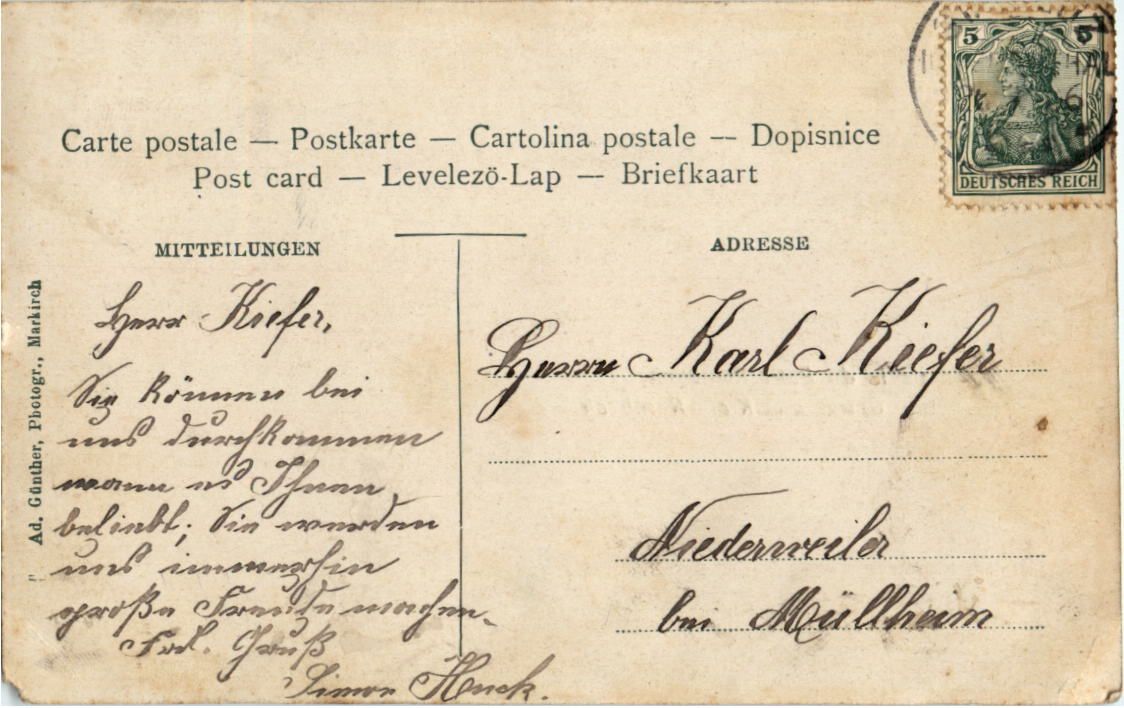 Carte postale — Postkarte — Cartolina postale — Dopisnice
Post card — Levelezö-Lap — Briefkaart
5 5
DEUTSCHES REICH
MITTEILUNGEN
ADRESSE
Ad. Günther, Photogr., Markirch
Herr Kiefer,
Sie können bei
uns durchkommen
wann es Ihnen
beliebt; Sie werden
uns immerhin
große Freude machen.
Frdl. Gruß
Simon Huck.
Herrn Karl Kiefer
Niederweiler
bei Müllheim